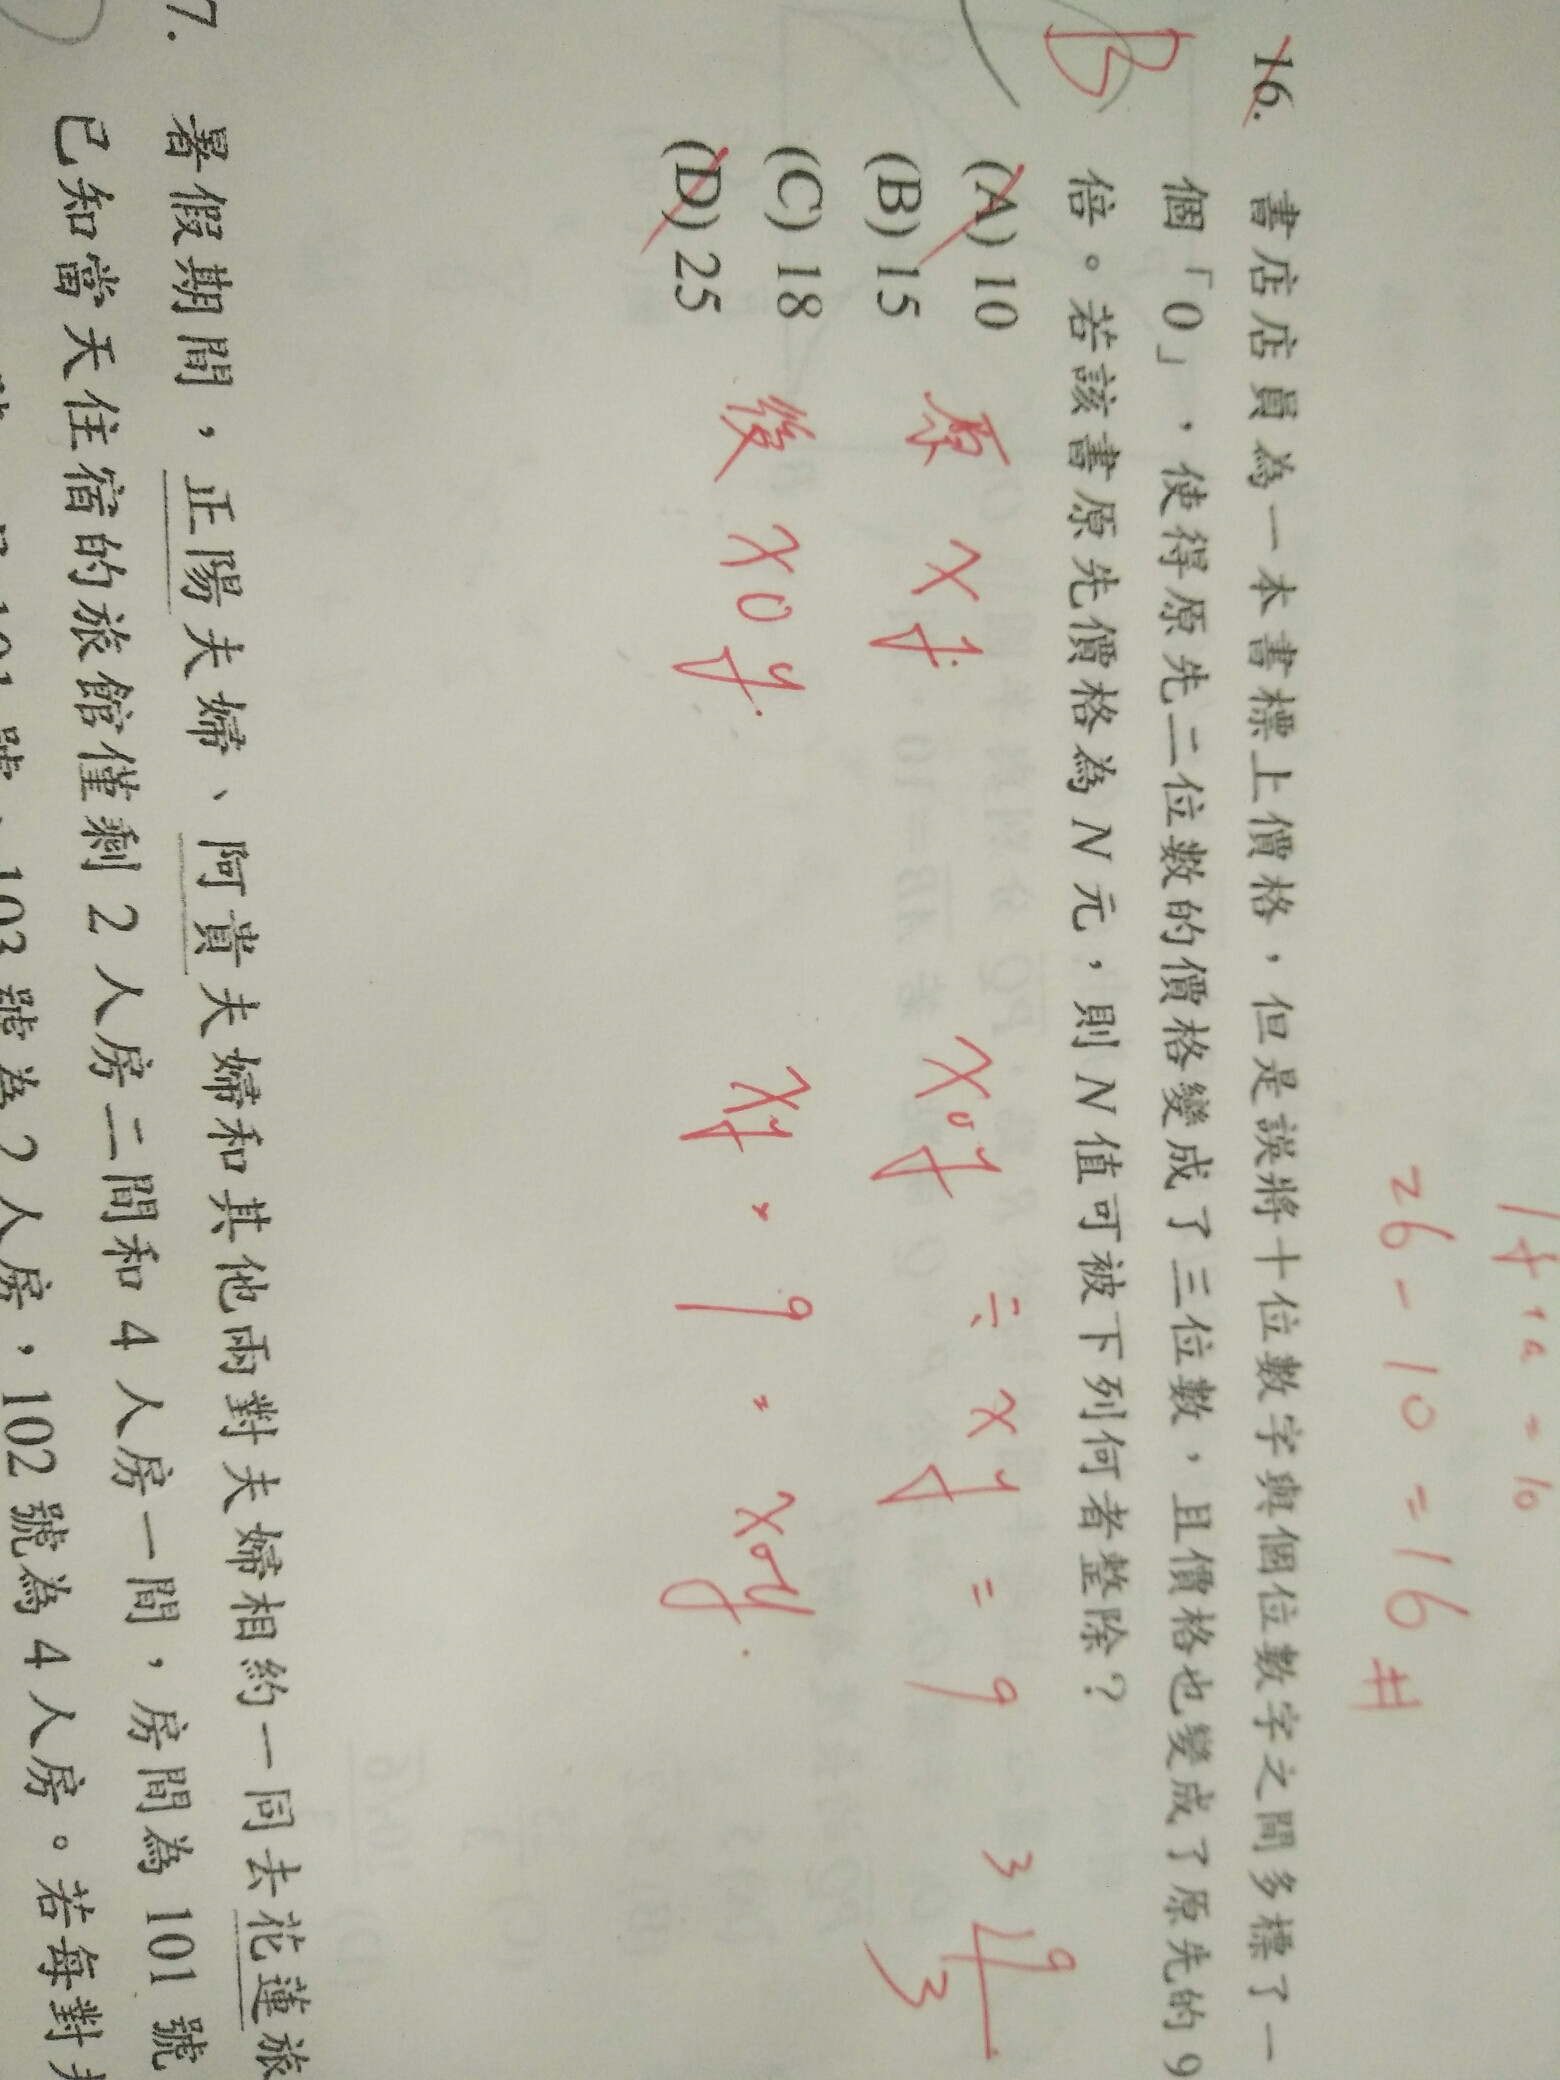 1y+a=10
26-10=16 #
16. 書店店員為一本書標上價格，但是誤將十位數字與個位數字之間多標了一
個「0」，使得原先二位數的價格變成了三位數，且價格也變成了原先的9
B 倍。若該書原先價格為N元，則N值可被下列何者整除？
(A) 10
(B) 15
(C) 18
(D) 25
原 xy
後 x0y
x0y ÷ xy = 9
xy × 9 = x0y
3 9
3
7. 暑假期間，正陽夫婦、阿貴夫婦和其他兩對夫婦相約一同去花蓮旅
已知當天住宿的旅館僅剩2人房二間和4人房一間，房間為101號
103號為2人房，102號為4人房。若每對